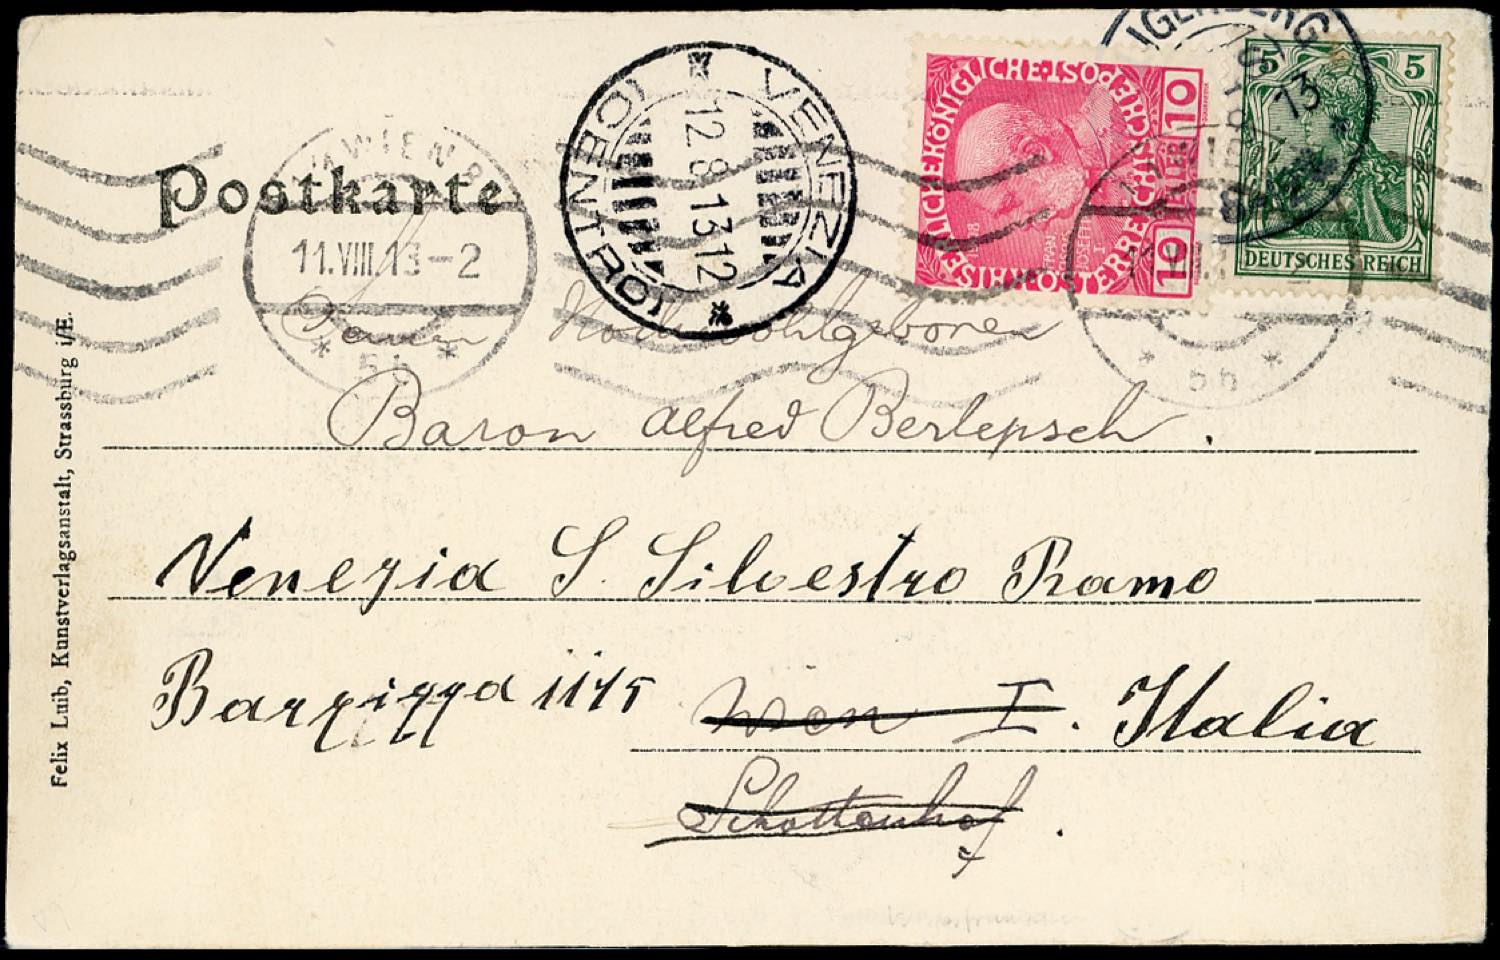 Postkarte
WIEN
11.VIII.13-2
5h
VENEZIA
(CENTRO)
12.8.13 12
KAISERLICHE KÖNIGLICHE ÖSTERREICHISCHE POST
10 HELLER 10
FRANZ JOSEPH I
5 5
DEUTSCHES REICH
13
5h
Hochwohlgeboren
Baron Alfred Berlepsch.
Venezia S. Silvestro Ramo
Barzizza 1175
Wien I. Italia
Schottenhof.
Felix Luib, Kunstverlagsanstalt, Strassburg i/E.